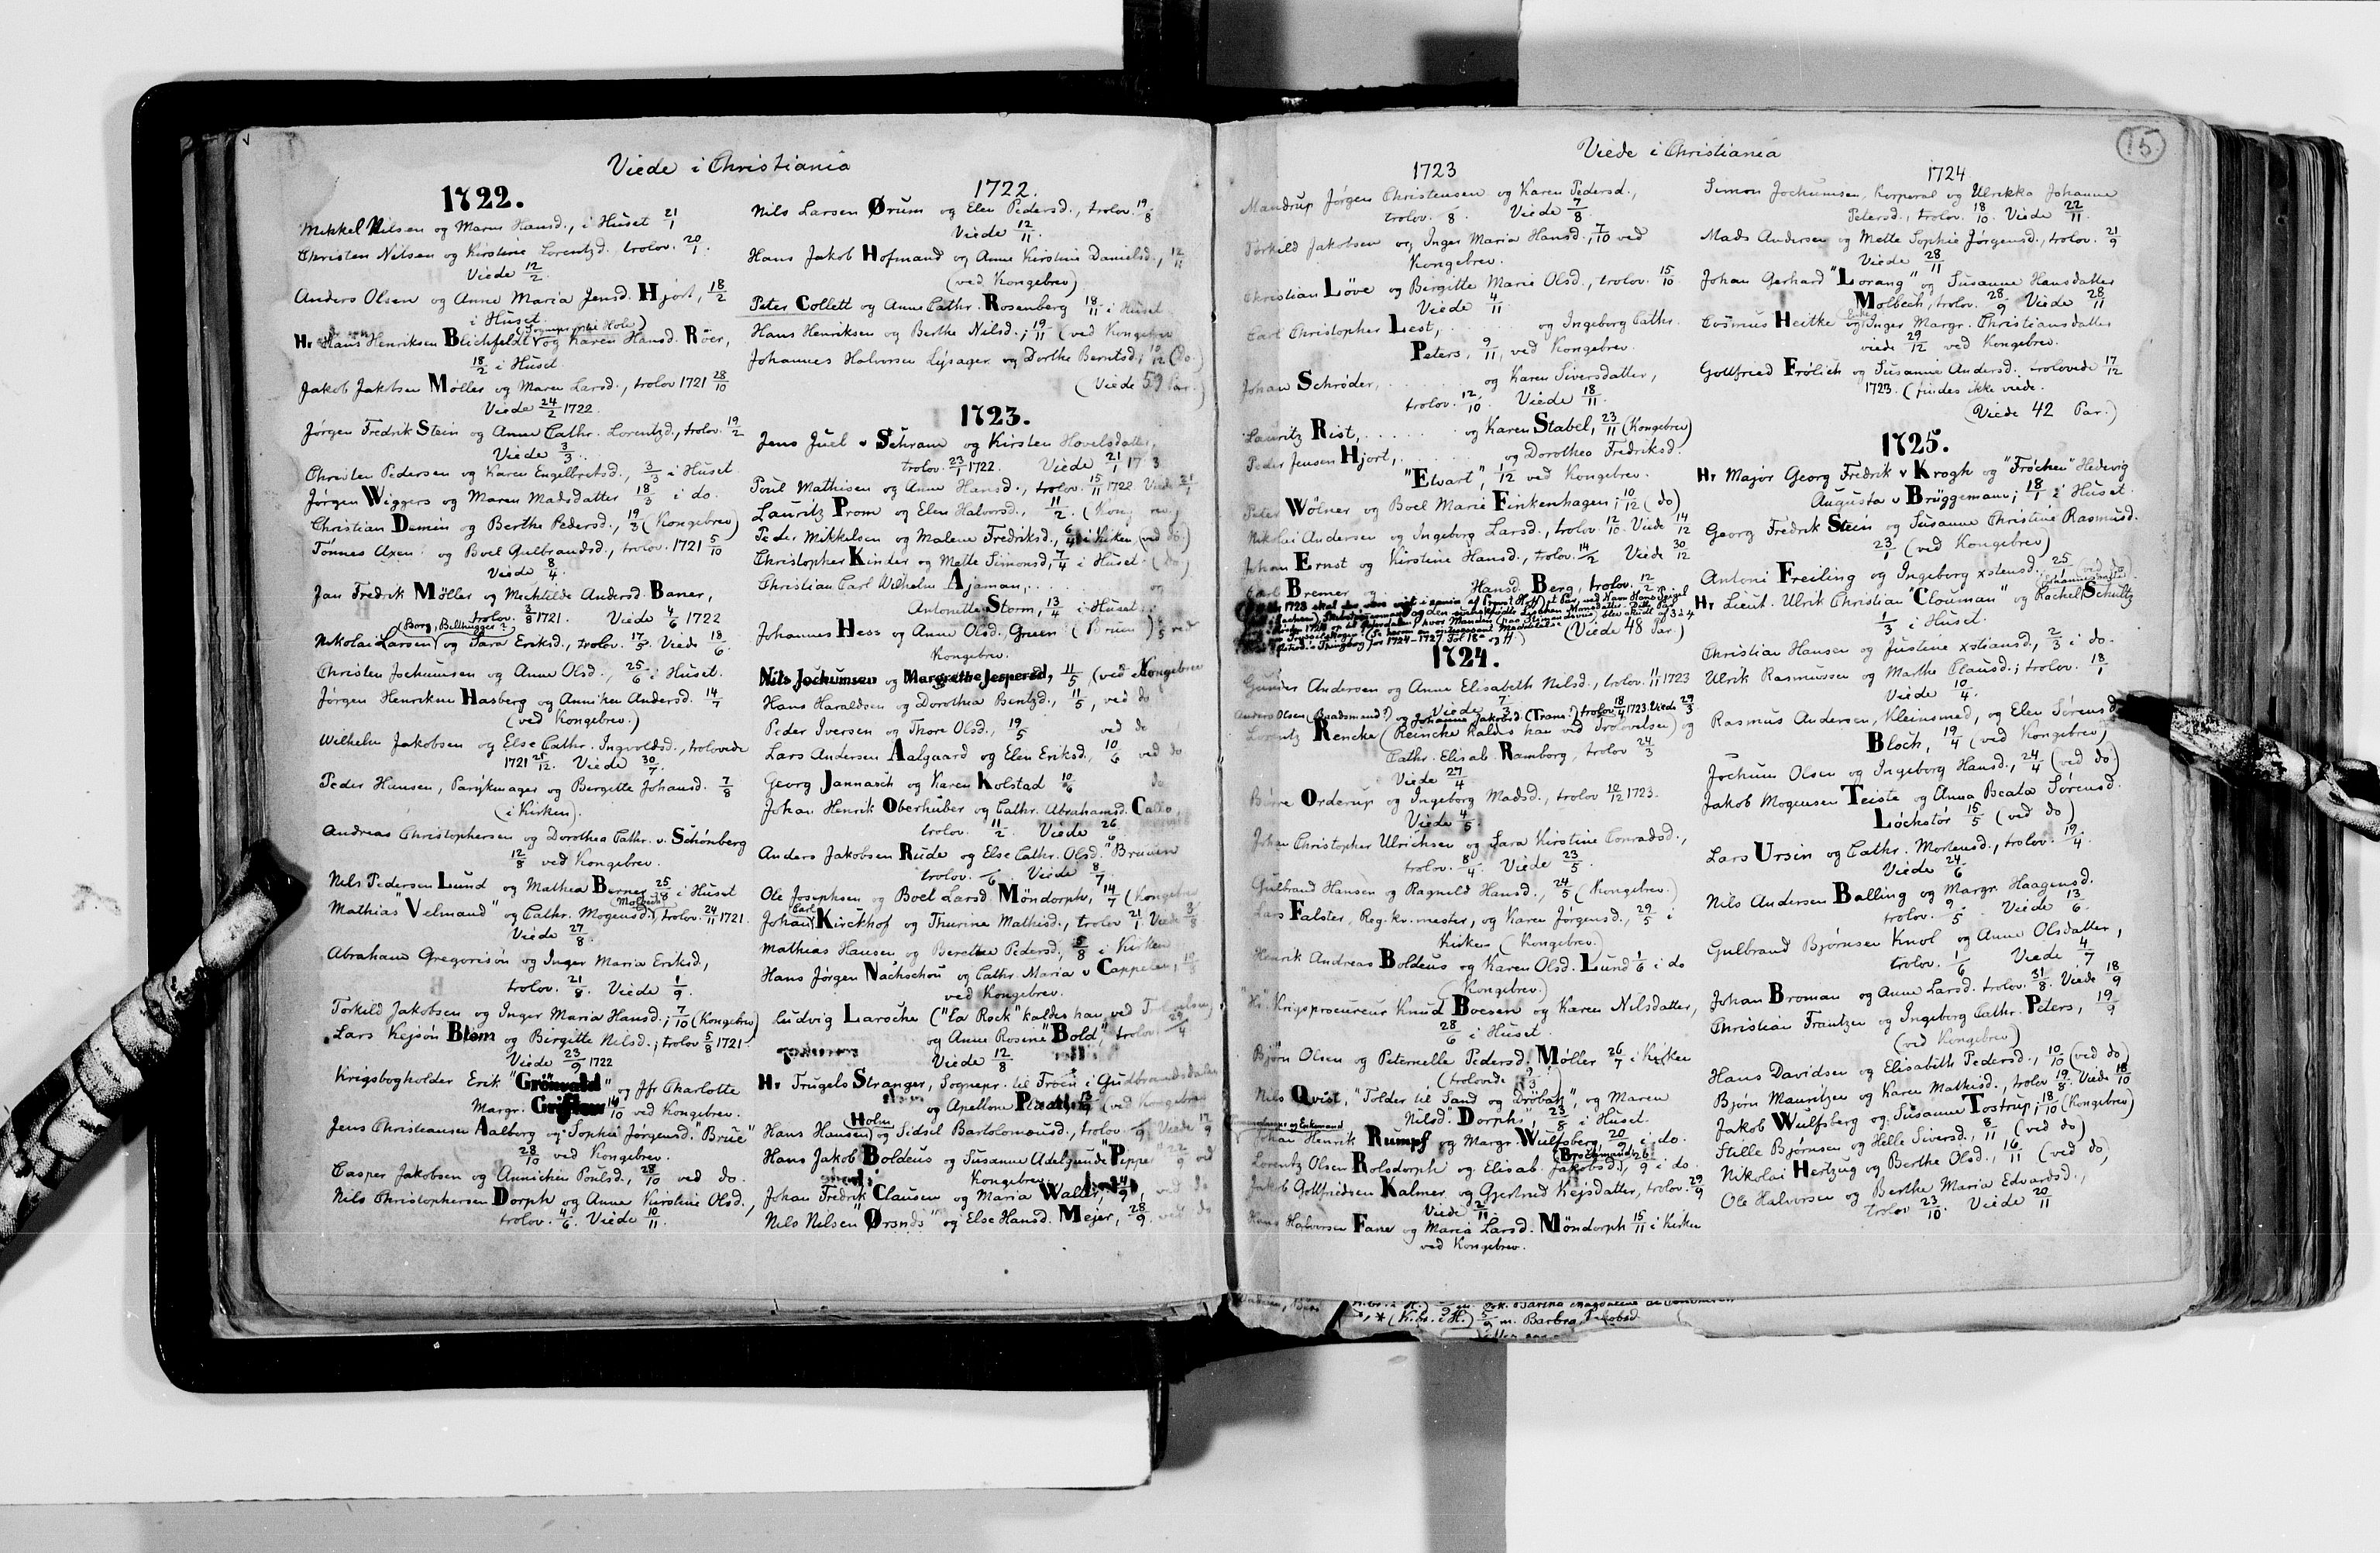 Viede i Christiania
1722.
Mikkel Nilsen og Maren Hansd., i Huset 21/1
Christen Nilsen og Kirstine Lorentzd. trolov. 20/1.
Viede 12/2.
Anders Olsen og Anne Maria Jensd. Hjort, 18/2
i Huset.
(Sogneprest til Hole)
Hr Hans Henriksen Blichfeldt og Karen Hansd. Röer,
18/2 i Huset.
Jakob Jakobsen Møller og Maren Larsd., trolov 1721 28/10
Viede 24/2 1722.
Jørgen Fredrik Stein og Anne Cathr. Lorentzd., trolov. 19/2
Viede 3/3.
Christen Pedersen og Karen Engelbretsd., 3/3 i Huset.
Jørgen Wiggers og Maren Madsdatter 18/3 i do.
Christian Demin og Berthe Pedersd., 19/3 (Kongebrev)
Tønnes Axen og Boel Gulbrandsd., trolov. 1721 5/10
Viede 8/4.
Jan Fredrik Møller og Michtilde Andersd. Baner,
trolov. 3/8 1721. Viede 4/6 1722
(Borg, Belthugger?)
Nikolai Larsen og Sara Eriksd., trolov. 17/5. Viede 18/6.
Christen Jochumsen og Anne Olsd., 25/6 i Huset.
Jørgen Henriksen Hasberg og Anniken Andersd. 14/7
(ved Kongebrev.)
Wilhelm Jakobsen og Else Cathr. Ingvoldsd., trolovede
1721 21/12. Viede 30/7.
Peder Hansen, Parykmager og Bergitte Johansd. 7/8
(i Kirken).
Andreas Christophersen og Dorothea Cathr. v. Schönberg
12/8 ved Kongebrev.
Nils Pedersen Lund og Mathea Berner 25/8 i Huset
Mathias "Velmand" og Cathr. Mogensd., trolov. 24/11 1721.
Viede 27/8.
Abraham Gregorisön og Inger Maria Eriksd.,
trolov. 21/8. Viede 1/9.
Torkild Jakobsen og Inger Maria Hansd.; 7/10 (Kongebrev)
Lars Kejsön Blom og Birgitte Nilsd.; trolov 5/8 1721.
Viede 23/9 1722
Krigsbogholder Erik "Grönvald" og Jfr Charlotte
Margr. 14/10 ved Kongebrev.
Jens Christiansen Aalborg og Sophie Jørgensd. "Brue"
28/10 ved Kongebrev.
Casper Jakobsen og Annichen Poulsd., 28/10 ved do.
Nils Christophersen Dorph og Anne Kirstine Olsd.,
trolov. 4/6. Viede 10/11.
1722.
Nils Larsen Ørum og Elen Pedersd., trolov. 19/8
Viede 12/11.
Hans Jakob Hofmand og Anne Kirstine Danielsd., 12/11
(ved Kongebrev)
Peter Collett og Anne Cathr. Rosenberg 18/11 i Huset
Hans Henriksen og Berthe Nilsd.; 19/11 (ved Kongebrev
Johannes Halvorsen Lysager og Dorthe Berntsd; 10/12 (do.
(Viede 59 Par.)
1723.
Jens Juel v Schram og Kirsten Hovelsdatter,
trolov. 23/1 1722. Viede 21/1
Poul Mathisen og Anne Hansd., trolov. 15/11 1722 Viede 21/1
Lauritz Prom og Elen Halvorsd., 11/2.
Peder Mikkelsen og Malene Fredriksd., i Kirken (ved do.)
Christopher Kinder og Mette Simonsd, 7/4 i Huset. (do)
Christian Carl Wilhelm Ajaman, . . . og
Antonette Storm, 13/4 i Huset
Johannes Hess og Anne Olsd. Gruen (Bruun) ved
Kongebrev.
Nils Jochumsen og Margrethe Jespersd, 11/5 (ved Kongebrev
Hans Haraldsen og Dorothea Bentzd., 11/5, ved do
Peder Iversen og Thore Olsd., 19/5 ved do
Lars Andersen Aalgaard og Elen Eriksd., 10/6 ved do
Georg Jannasch og Karen Kolstad 10/6 do
Johan Henrik Oberhuber og Cathr. Abrahamsd. Callo
trolov. 11/2. Viede 26/6.
Anders Jakobsen Rude og Else Cathr. Olsd. "Bruuen
trolov. Viede 8/7.
Ole Josephsen og Boel Larsd. Möndorph, 14/7 (Kongebrev
Carl
Johan Kirckhof og Thurine Mathisd., trolov 21/1. Viede 3/8
Mathias Hansen og Berethe Pedersd; 5/8 i Kirken
Hans Jørgen Nachschou og Cathr. Maria v Cappelen,
ved Kongebrev.
Ludvig Larsche ("La Rock" kaldes han ved Trolovelsen)
og Anne Rosine "Bold", trolov. 29/4
Viede 12/8
Hr Trugels Stranger, Sognepr. til Froen i Gudbrandsdalen
og Apellone (ved Kongebrev
Holm
Hans Hansen og Sidsel Bartolomæusd., trolov. Viede 17/9
Hans Jakob Boldeus og Susanne Adelgunde "Pipper 22/9 ved
Kongebrev
Johan Fredrik Clausen og Maria Walør, ved do
Nils Nilsen "Ørsnds" og Else Hansd. Mejer, 28/9. ved do
15
Viede i Christiania
1723
Mandrup Jörgen Christensen og Karen Pedersd.,
trolov. 8. Viede 7/8.
Torkild Jakobsen og Inger Maria Hansd., 7/10 ved
Kongebrev.
Christian Löve og Bergitte Marie Olsd., trolov. 15/10
Viede 4/11.
Carl Christopher Lest, . . . og Ingeborg Cathr.
Peters, 9/11, ved Kongebrev.
Johan Schröder, . . . og Karen Siversdatter,
trolov. 12/10. Viede 18/11.
Lauritz Rist, . . . og Karen Stabel, 23/11 (Kongebrev)
Peder Jensen Hjort, . . . og Dorothea Fredriksd.
"Elvart", 1/12 ved Kongebrev.
Peter Wölner og Boel Marie Finkenhagen; 10/12 (do)
Nikolai Andersen og Ingeborg Larsd., trolov 12/10. Viede 14/12
Johan Ernst og Kirstine Hansd., trolov. 14/2 Viede 30/12
Carl Bremer og . . . Hansd. Berg, trolov. 12/2.
(Viede 48 Par.)
1724.
Gunder Andersen og Anne Elisabeth Nilsd., trolov. 11/11 1723
Viede 7/3
Anders Olsen (Baadsmand?) og Johanne Jakobsd. (Trans.?) trolov 18/4 1723. Viede 29/3
Lorentz Rencke (Reincke kaldes han ved Trolovelsen) og
Cathr. Elisab. Ramborg, trolov 24/3
Viede 27/4
Börre Orderup og Ingeborg Madsd., trolov 10/12 1723.
Viede 4/5.
Johan Christopher Ulrichsen og Sara Kirstine Conradsd.,
trolov. 8/4. Viede 23/5.
Gulbrand Hansen og Ragnild Hansd., 24/5 (Kongebrev.)
Lars Falster, Reg.kv.mester, og Karen Jörgensd., 29/5 i
Kirken (Kongebrev.)
Henrik Andreas Boldeus og Karen Olsd. Lund 1/6 i do
(Kongebrev.)
"Hr" Krigsprocureur Knud Boesen og Karen Nilsdatter,
28/6 i Huset.
Bjørn Olsen og Peternelle Pedersd. Møller 26/7 i Kirken
(trolovede 9/3)
Nils Qvist, "Tolder til Sand og Dröbak", og Maren
Nilsd. "Dorphs", 23/8 i Huset.
Johan Henrik Rumpf og Margr. Wulfsberg, 20/9 i do.
Lorentz Olsen Rolsdorph og Elisab. Jakobsd., 26/9 i do.
Jakob Gottfriedsen Kalmer og Gjertrud Kejsdatter, trolov. 29/9
Viede 2/11.
Hans Halvorsen Fane og Maria Larsd. Möndorph 15/11 i Kirken
ved Kongebrev.
1724
Simon Jochumsen, Korporal og Ulrikka Johanne
Petersd., trolov. 18/10. Viede 22/11.
Mads Andersen og Mette Sophie Jørgensd., trolov. 21/9
Viede 28/11
Johan Gerhard "Lorang" og Susanne Hansdatter
Molbech, trolov. 28/9 Viede 28/11
Enke
Cosmus Heitke og Inger Margr. Christiansdatter
viede 29/12 ved Kongebrev.
Gottfried Frölich og Susanne Andersd. trolovede 17/12
1723. (findes ikke viede.
(Viede 42 Par.)
1725.
Hr Major Georg Fredrik v Krogh og "Fröchen" Hedevig
Augusta v Brüggemann; 18/1 i Huset.
Georg Fredrik Stein og Susanne Christine Rasmusd.
23/1 (ved Kongebrev)
Antoni Freiling og Ingeborg xstensd. 25/1 (ved do)
Hr Lieut. Ulrik Christian "Clouman" og Rachel Schultz
1/3 i Huset.
Christian Hansen og Justine xstiansd., 2/3 i do.
Ulrik Rasmussen og Marthe Clausd.; trolov. 18/1
Viede 10/4.
Rasmus Andersen, Kleinsmed, og Elen Sørensd.
Bloch, 19/4 (ved Kongebrev)
Jochum Olsen og Ingeborg Hansd., 24/4 (ved do.)
Jakob Mogensen Teiste og Anna Beata Sørensd.
Löchstör 15/5 (ved do)
Lars Ursin og Cathr. Mortensd., trolov. 19/4.
Viede 24/6
Nils Andersen Balling og Margr. Haagensd.
trolov. 9/5. Viede 13/6.
Gulbrand Bjørnsen Knol og Anne Olsdatter,
trolov. 1/6 Viede 4/7
Johan Broman og Anne Larsd. trolov. 31/8. Viede 18/9
Christian Frantzen og Ingeborg Cathr. Peters, 19/9
(ved Kongebrev)
Hans Davidsen og Elisabeth Pedersd., 10/10 (ved do)
Bjørn Mauritzen og Karen Mathisd., trolov 19/8. Viede 18/10
Jakob Wulfsberg og Susanne Tostrup; 18/10 (Kongebrev)
Stille Bjørnsen og Helle Siversd., 8/11 (ved do)
Nikolai Hertzug og Berthe Olsd., 16/11 (ved do)
Ole Halvorsen og Berthe Maria Edvardsd.,
trolov 23/10. Viede 20/11
m. Barbra Jakobsd.